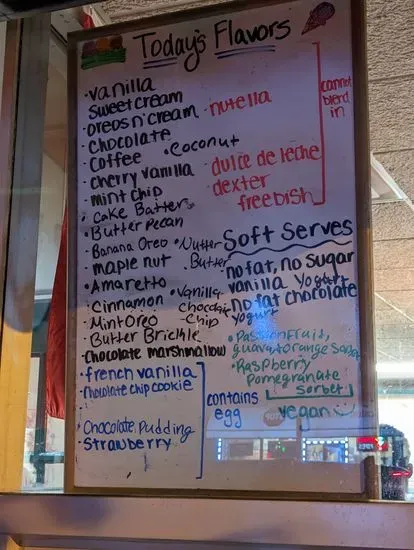 Today's Flavors
• vanilla
sweetcream
• oreos n' cream
• chocolate
• coffee
• cherry vanilla
• mint chip
• Cake Batter
• Butter Pecan
• Banana Oreo
• maple nut
• Amaretto
• Cinnamon
• Mint Oreo
• Butter Brickle
• chocolate marshmallow
• french vanilla
• chocolate chip cookie
• Chocolate Pudding
• Strawberry
contains
egg
• nutella
• Coconut
dulce de leche
dexter
freebish
cannot
blend
in
• Nutter
Butter
• Vanilla
Chocolate
Chip
Soft Serves
• no fat, no sugar
vanilla Yogurt
• no fat chocolate
yogurt
• Passion Fruit,
guava + orange Sorbet
• Raspberry
Pomegranate
sorbet
vegan